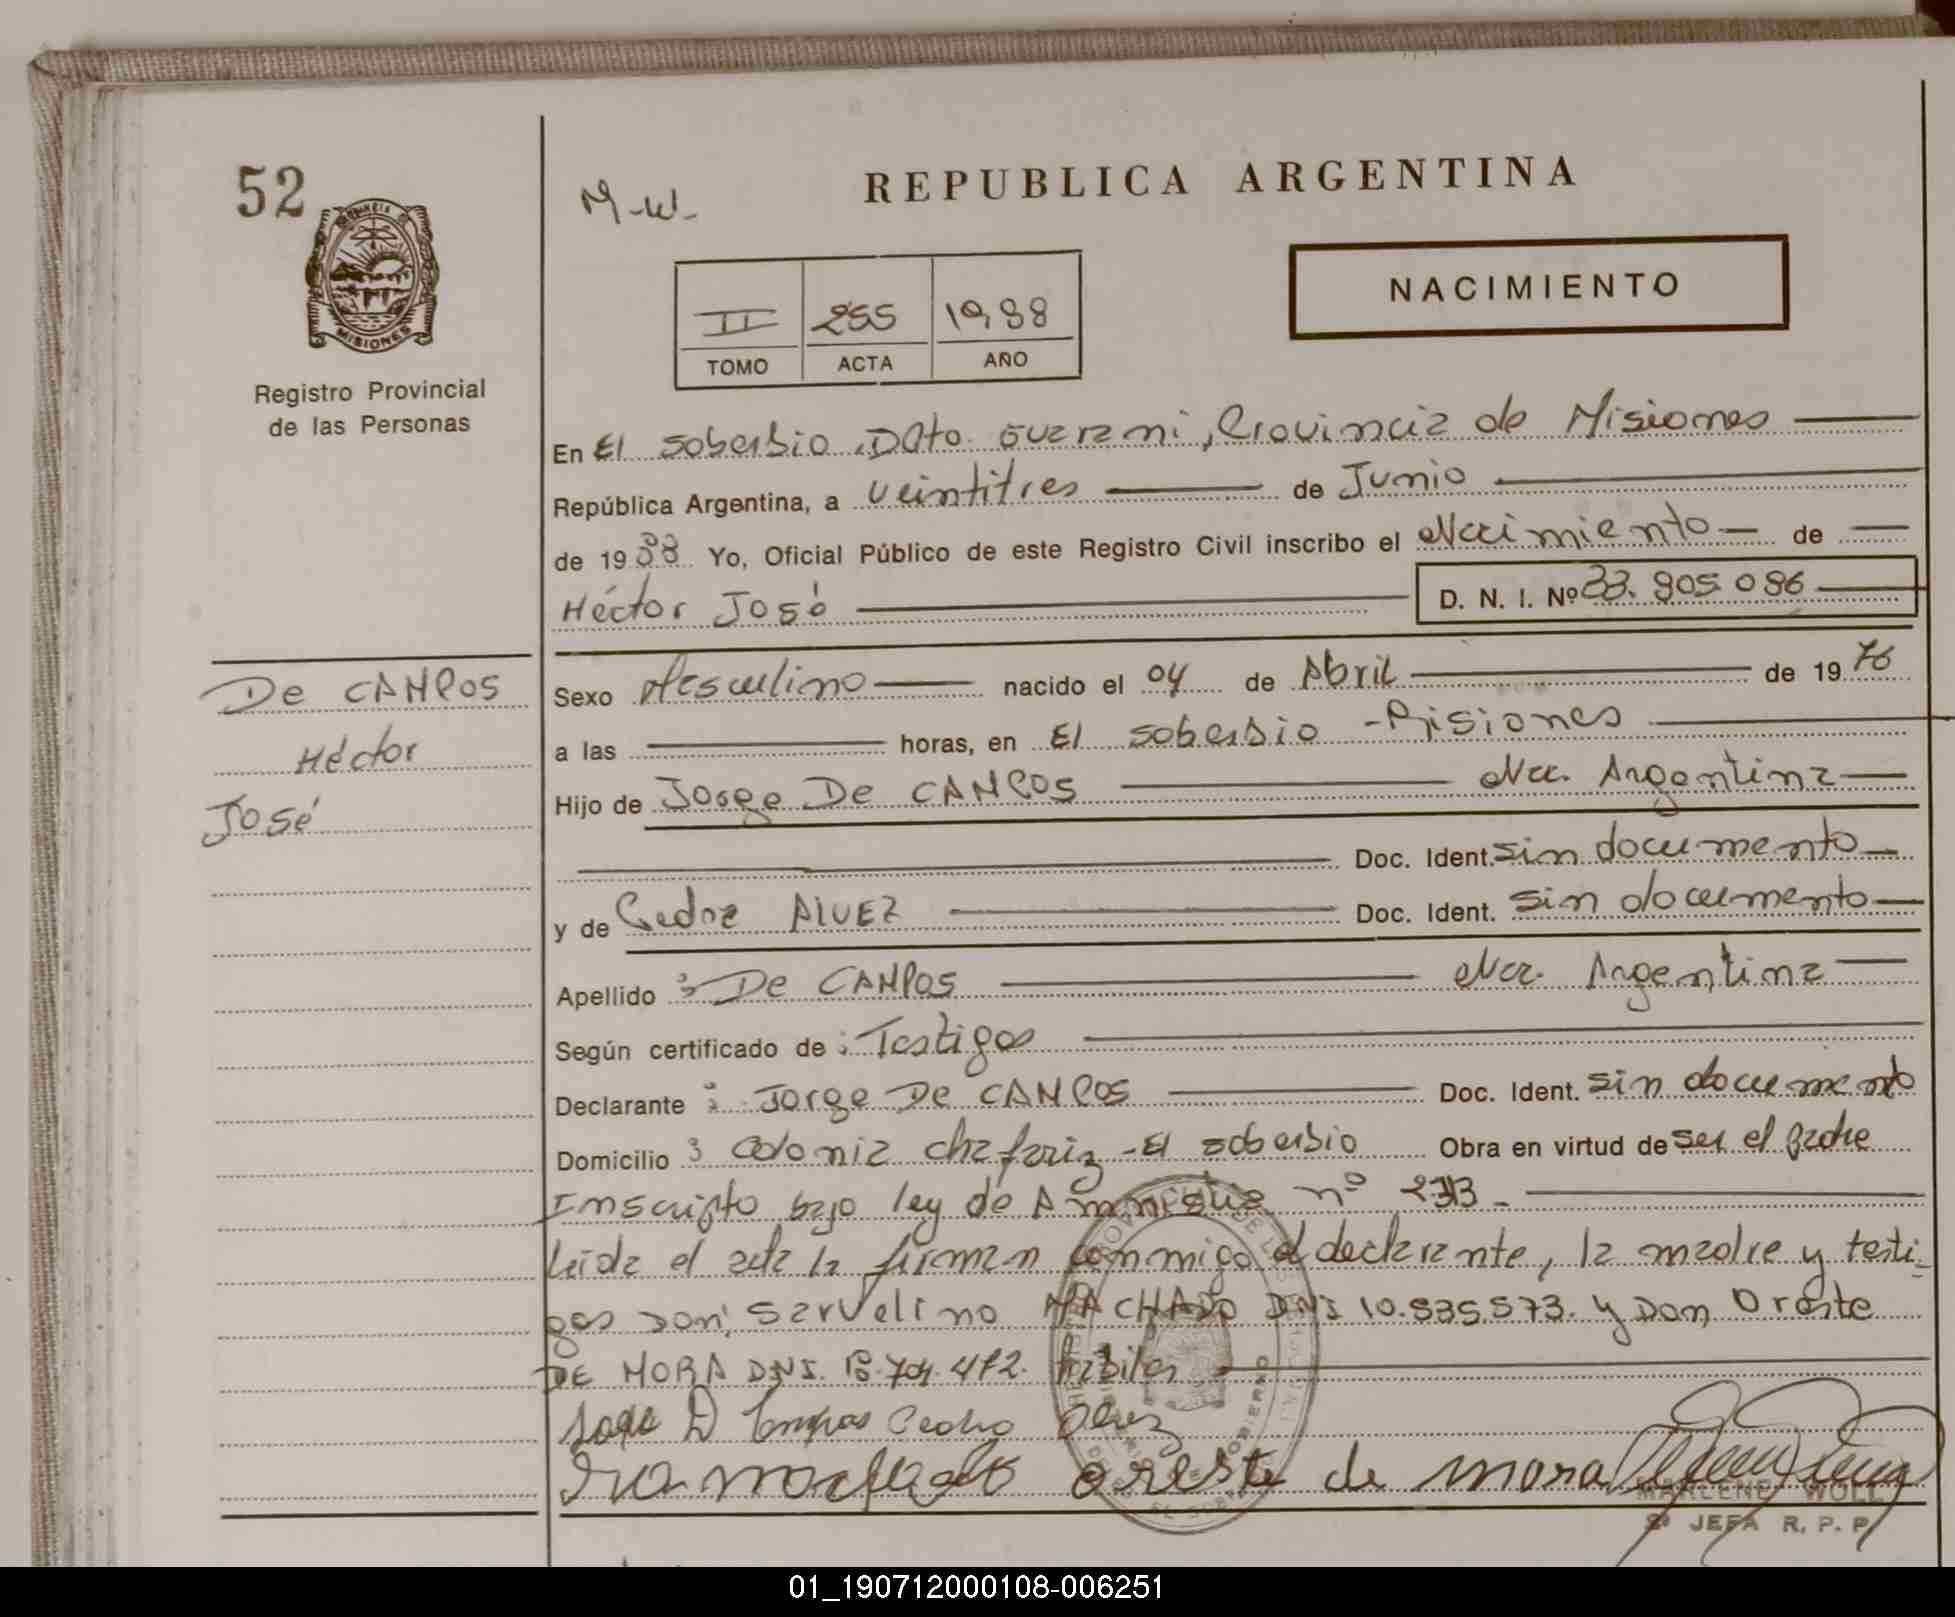 52
M-W-
REPUBLICA ARGENTINA
NACIMIENTO
II 255 1988
TOMO ACTA AÑO
MISIONES
Registro Provincial
de las Personas
En El soberbio, Dpto. Guarani, Provincia de Misiones
República Argentina, a veintitres de Junio
de 1988 Yo, Oficial Público de este Registro Civil inscribo el Nacimiento de
Héctor José D. N. I. Nº
De CAMPOS
Héctor
José
Sexo Masculino nacido el 04 de Abril de 1976
a las horas, en El soberbio - Misiones
Hijo de Jorge De CAMPOS Nac. Argentina
Doc. Ident. sin documento
y de Pedra Alvez Doc. Ident. sin documento
Apellido : De CAMPOS Nac. Argentina
Según certificado de : Testigos
Declarante : Jorge De CAMPOS Doc. Ident. sin documento
Domicilio : Colonia Chafariz - El soberbio Obra en virtud de ser el padre
Inscripto bajo ley de Amnistia nº
Leida el acta la firman conmigo el declarante, la madre y testi-
gos Don: Servelino MACHADO DNI 10.535.573. y Don Oreste
DE MORA DNI. habiles
oreste de mora
MARLENE WOLL
JEFA R. P. P.
01_190712000108-006251